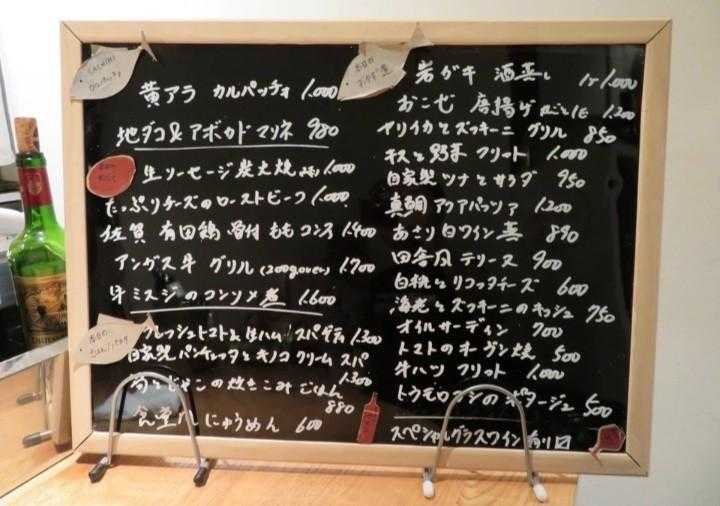 黄アラ カルパッチョ 1,000
地ダコ&アボカドマリネ 980
生ソーセージ 炭火焼 1,000
たっぷりチーズのローストビーフ 1,000
佐賀 有田鶏 骨付ももコンフィ 1,400
アンガス牛 グリル (200g over) 1,700
牛ミスジのコンソメ煮 1,600
本日の
フレッシュトマト&生ハム スパゲティ 1,300
自家製パンチェッタとキノコクリームスパ 1,300
筍とじゃこの炊きこみごはん 880
食堂 にゅうめん 600
本日の
岩ガキ 酒蒸し 1ケ1,000
おこぜ 唐揚げ 1,200
ヤリイカとズッキーニ グリル 850
キスと野菜 フリット 1,000
自家製ツナとサラダ 950
真鯛アクアパッツァ 1,200
あさり白ワイン蒸 890
田舎風テリーヌ 900
白桃とリコッタチーズ 600
海老とズッキーニのキッシュ 750
オイルサーディン 700
トマトのオーブン焼 500
牛ハツ フリット 1,000
トウモロコシのポタージュ 500
スペシャルグラスワイン有り〼